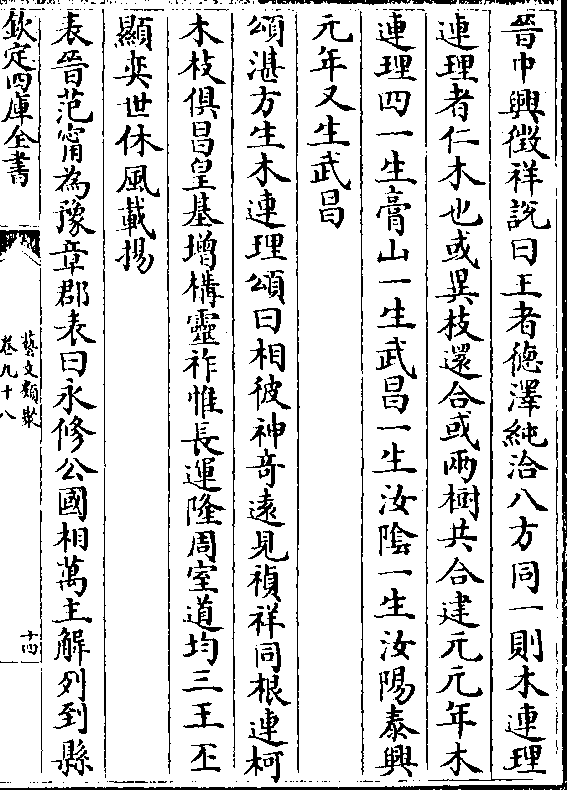 晉中興徵祥說曰王者德澤純洽八方同一則木連理
連理者仁木也或異枝還合或兩樹共合建元元年木
連理四一生膏山一生武昌一生汝陰一生汝陽泰興
元年又生武昌
頌湛方生木連理頌曰相彼神奇遠見禎祥同根連柯
木枝俱昌皇基增構靈祚惟長運隆周室道均三王丕
顯奕世休風載揚
表晉范甯為豫章郡表曰永修公國相萬主解列到縣
欽定四庫全書
藝文類聚
卷九十八
十四